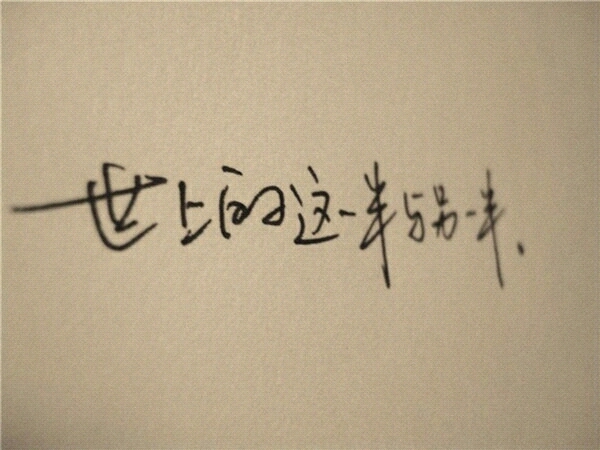 世上的这一半与另一半、